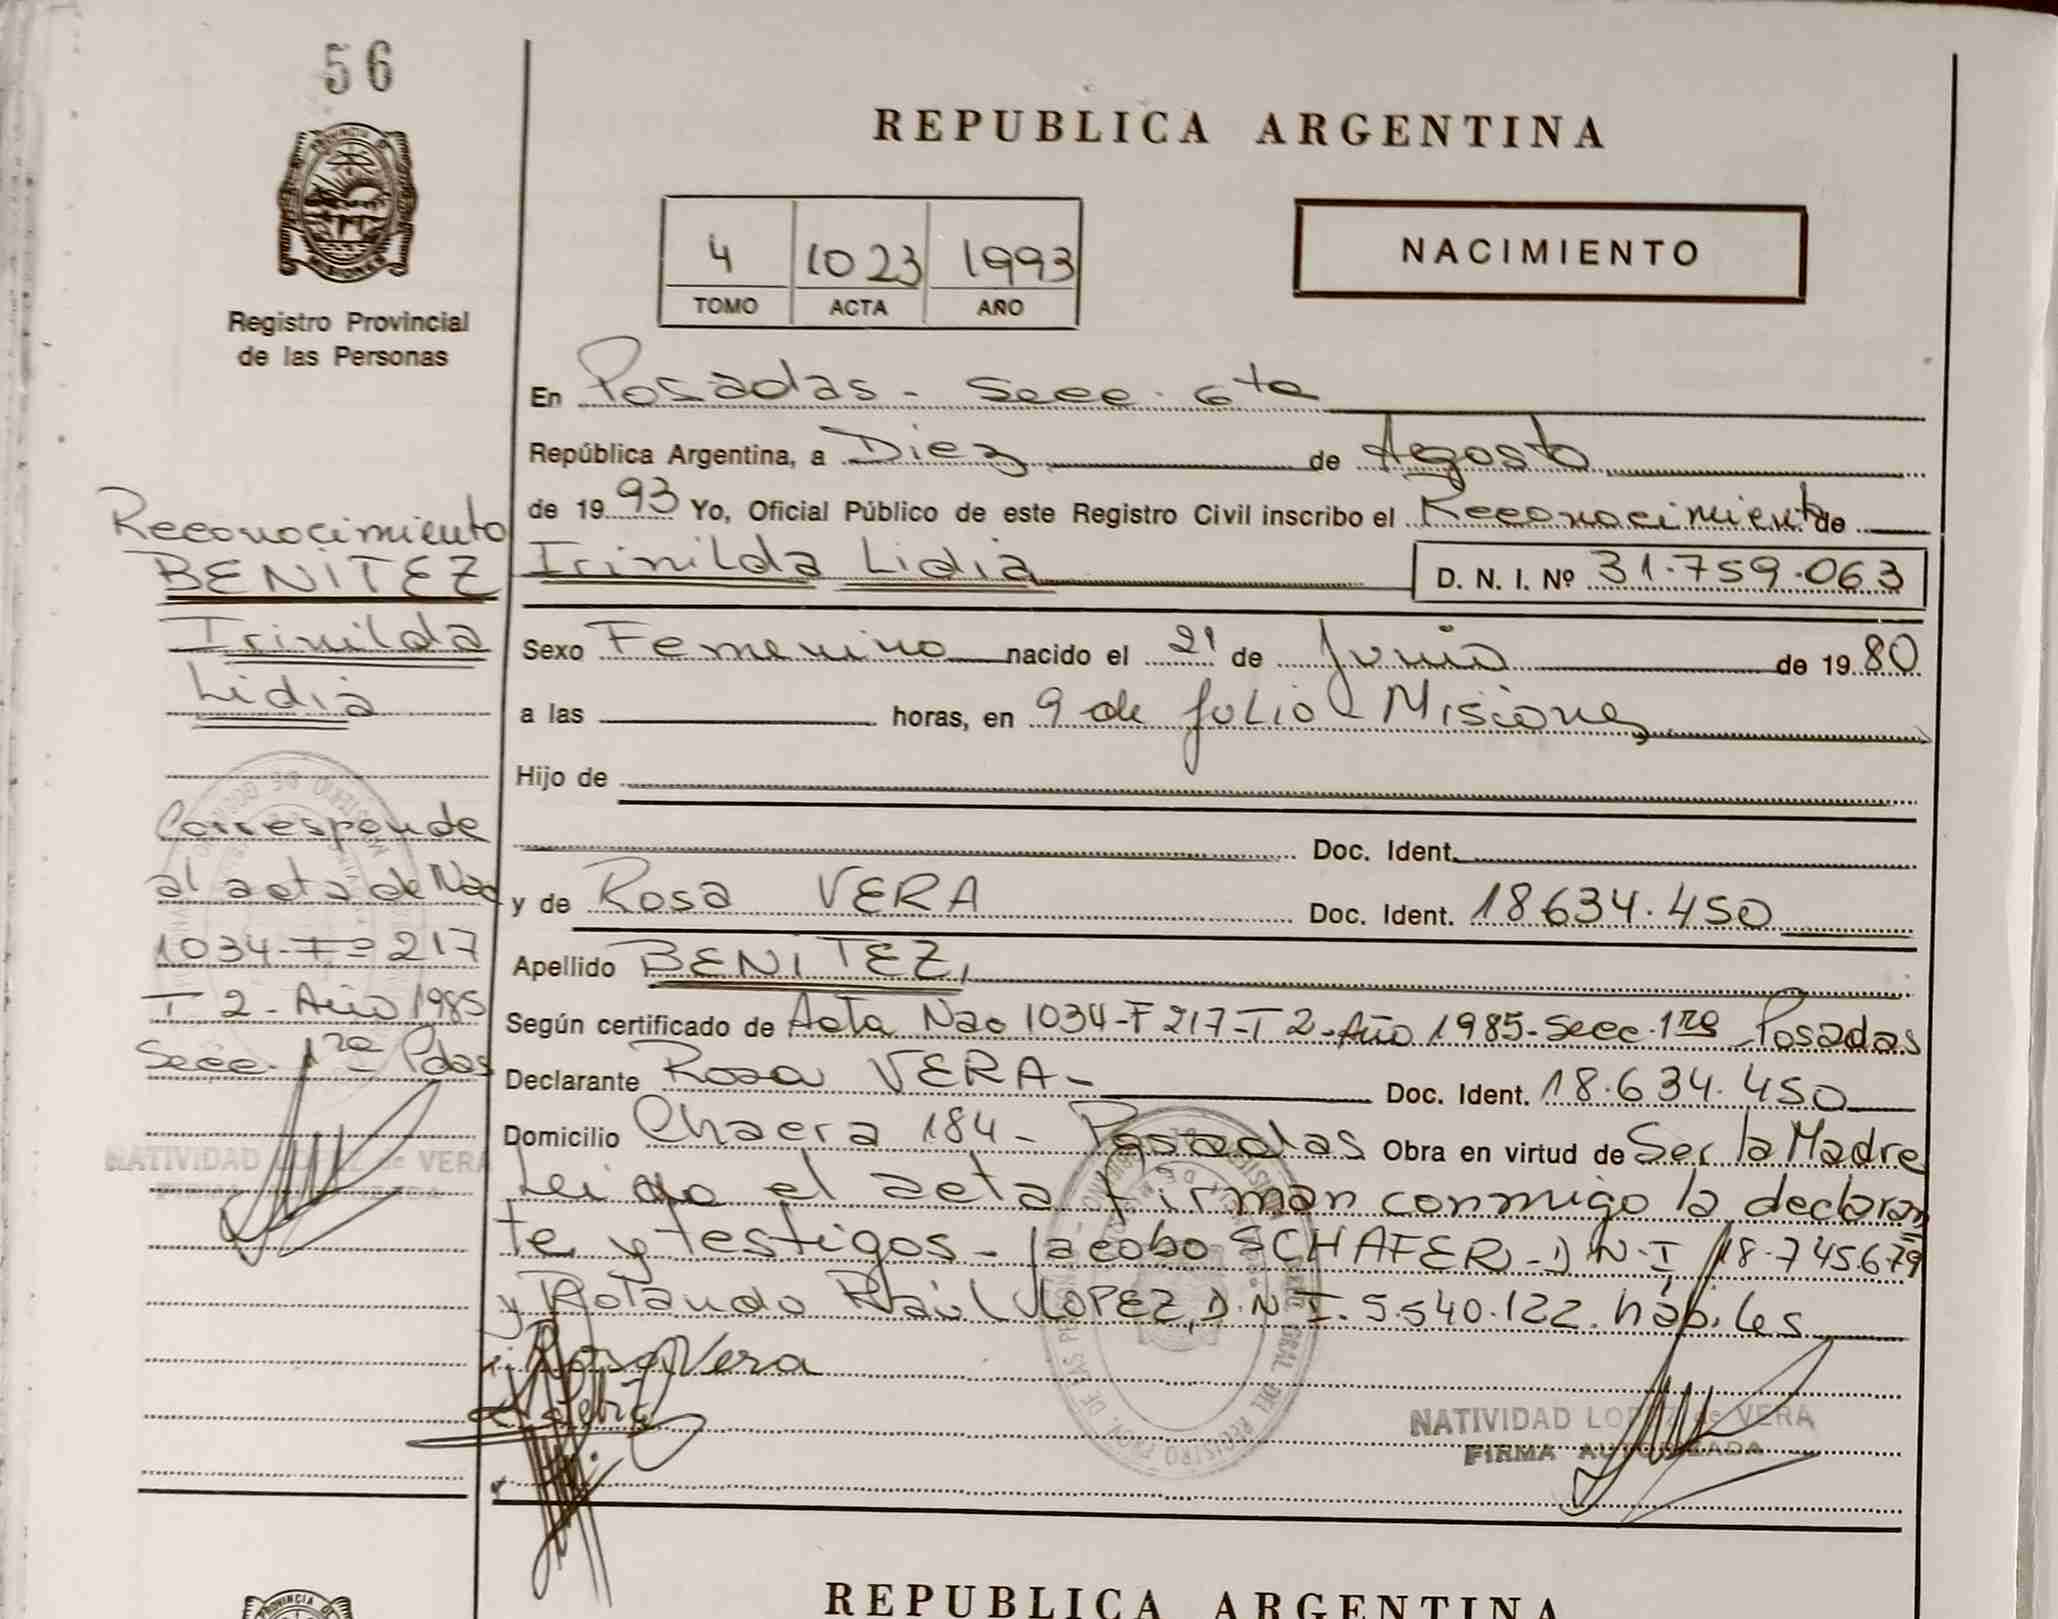 56
REPUBLICA ARGENTINA
NACIMIENTO
4 1023 1993
TOMO ACTA AÑO
Registro Provincial
de las Personas
En Posadas - Secc. 6ta
República Argentina, a Diez de Agosto
de 1993 Yo, Oficial Público de este Registro Civil inscribo el Reconocimiento de
Irinilda Lidia D. N. I. Nº 31.759.063
Sexo Femenino nacido el 21 de Junio de 1980
a las horas, en 9 de Julio - Misiones
Hijo de
Doc. Ident.
y de Rosa VERA Doc. Ident. 18634.450
Apellido BENITEZ,
Según certificado de Acta Nac 1034-F217-T2-Año 1985-Secc.1ra Posadas
Declarante Rosa VERA- Doc. Ident. 18.634.450
Domicilio Chacra 184- Posadas Obra en virtud de Ser la Madre
Leido el acta firman conmigo la declaran
te y testigos - Jacobo SCHAFER - D.N.I 18.745.679
y Rolando Raúl LOPEZ, D.N.I. 5.540.122. hábiles
Rosa Vera
NATIVIDAD LOPEZ de VERA
FIRMA AUTORIZADA
Reconocimiento
BENITEZ
Irinilda
Lidia
Corresponde
al acta de Nac
1034-Fº 217
T 2 - Año 1985
Secc. 1ra Pdas
NATIVIDAD LOPEZ de VERA
REPUBLICA ARGENTINA